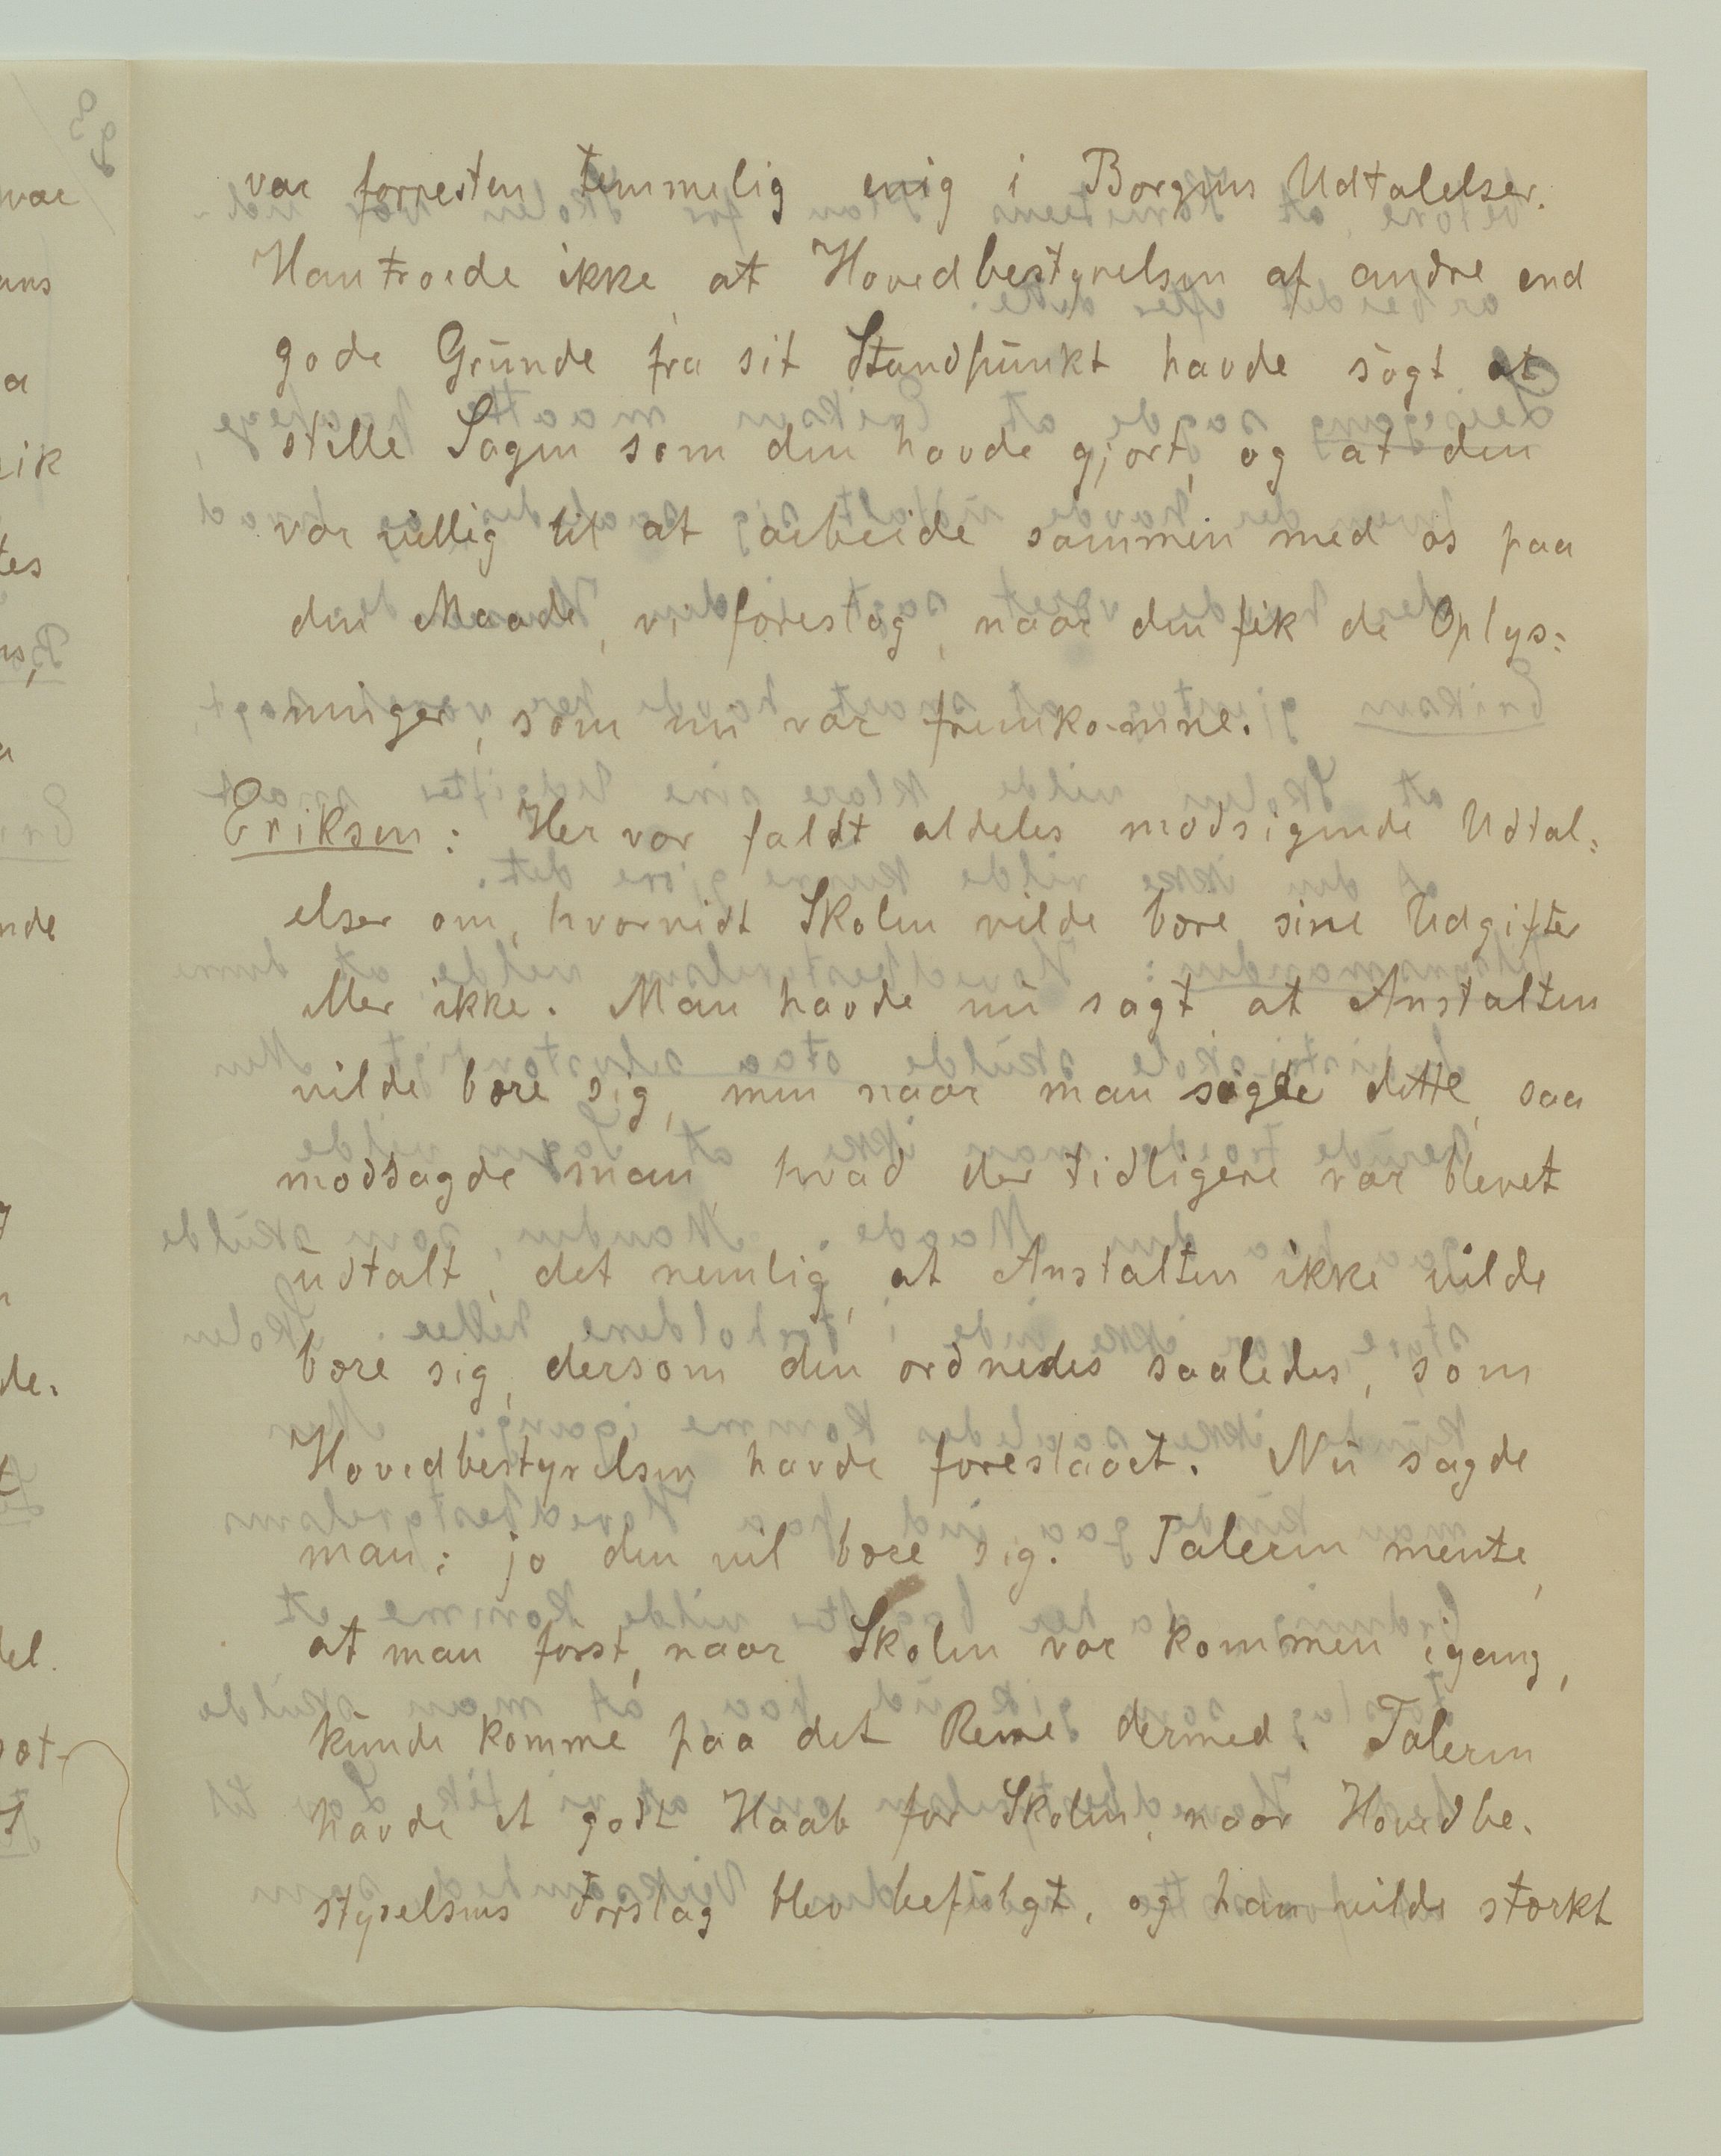 var forresten temmelig enig i Borgens Udtalelser.
Han troede ikke, at Hovedbestyrelsen af andre end
gode Gründe fra sit Standpünkt havde søgt at
stille Sagen som den havde gjort, og at den
var villig til at arbeide sammen med os paa
den Maade, vi foreslog, naar den fik de Oplys=
ninger, som nu var fremkomne.
Eriksen: Her var faldt aldeles modsigende Udtal=
elser om, hvorvidt Skolen vilde bære sine Udgifter
eller ikke. Man havde nu sagt, at Anstalten
vilde bære sig, men naar man sagde dette, saa
modsagde man, hvad der tidligere var blevet
üdtalt, det nemlig, at Anstalten ikke vilde
bære sig, dersom den ordnedes saaledes, som
Hovedbestyrelsen havde foreslaaet. Nü sagde
man: jo den vil bære sig. Taleren mente,
at man først, naar Skolen var kommen igang,
künde komme paa det Rene dermed. Taleren
havde et godt Haab for Skolen, naar Hovedbe-
styrelsens Forslag blev befülgt, og han vilde stærkt